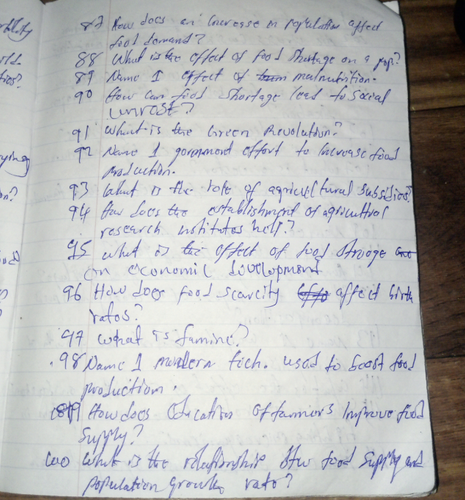 87 How does an increase in population affect
food demand?
88 What is the effect of food shortage on a pop?
89 Name 1 effect of malnutrition.
90 How can food shortage lead to social
unrest?
91 What is the Green Revolution?
92 Name 1 government effort to increase food
production.
93 What is the role of agricultural subsidies?
94 How does the establishment of agricultural
research institutes help?
95 what is the effect of food storage
on economic development
96 How does food scarcity affect birth
rates?
97 what is famine?
98 Name 1 modern tech. used to boost food
production.
99 How does education of farmers improve food
supply?
100 What is the relationship btw food supply and
population growth rate?